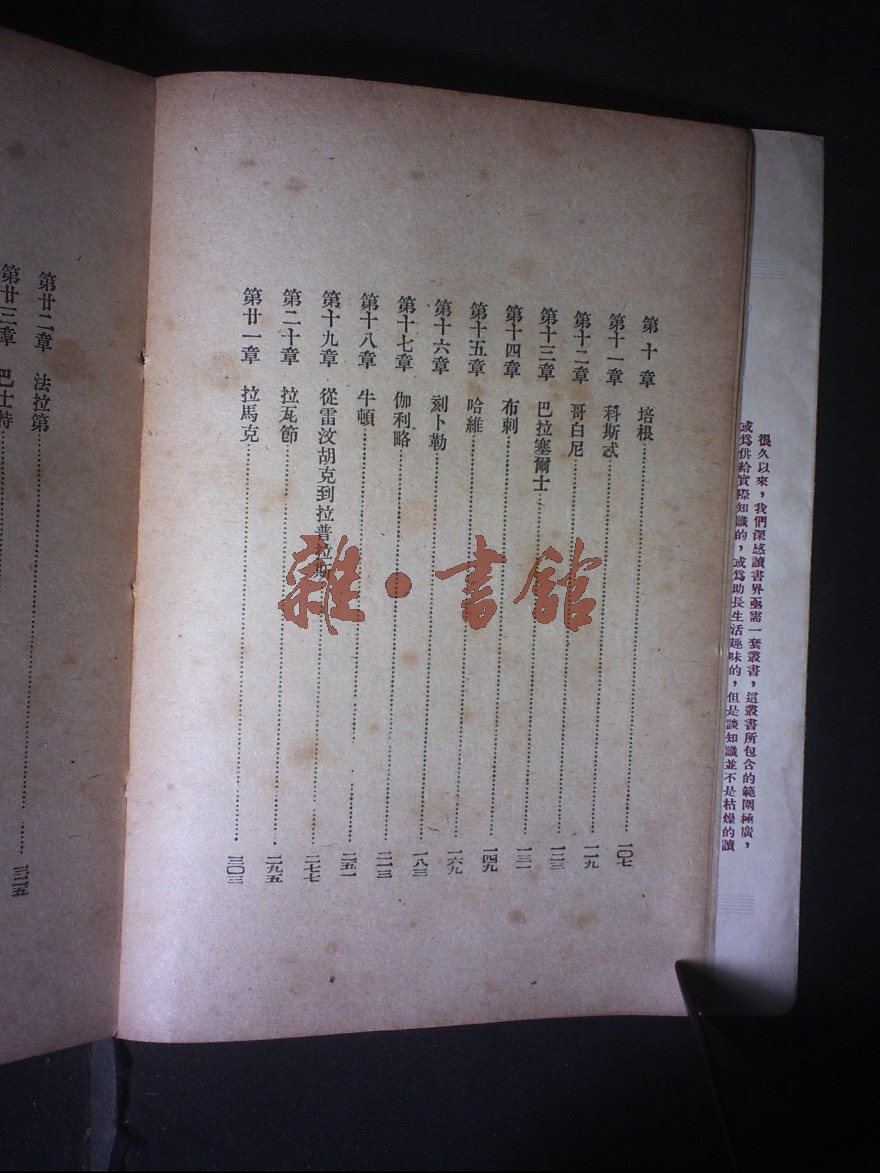 很久以來，我們深感讀書界亟需一套叢書，這叢書所包含的範圍極廣，
或爲供給實際知識的，或爲助長生活趣味的，但是談知識並不是枯燥的讀
第十章 培根 一〇七
第十一章 科斯忒 一一九
第十二章 哥白尼 一二三
第十三章 巴拉塞爾士 一三一
第十四章 布刺 一四九
第十五章 哈維 一六九
第十六章 刻卜勒 一八三
第十七章 伽利略 二一三
第十八章 牛頓 二五一
第十九章 從雷汶胡克到拉普拉斯 二七七
第二十章 拉瓦節 二九五
第廿一章 拉馬克 三〇三
第廿二章 法拉第 三二五
第廿三章 巴士特
雜·書館